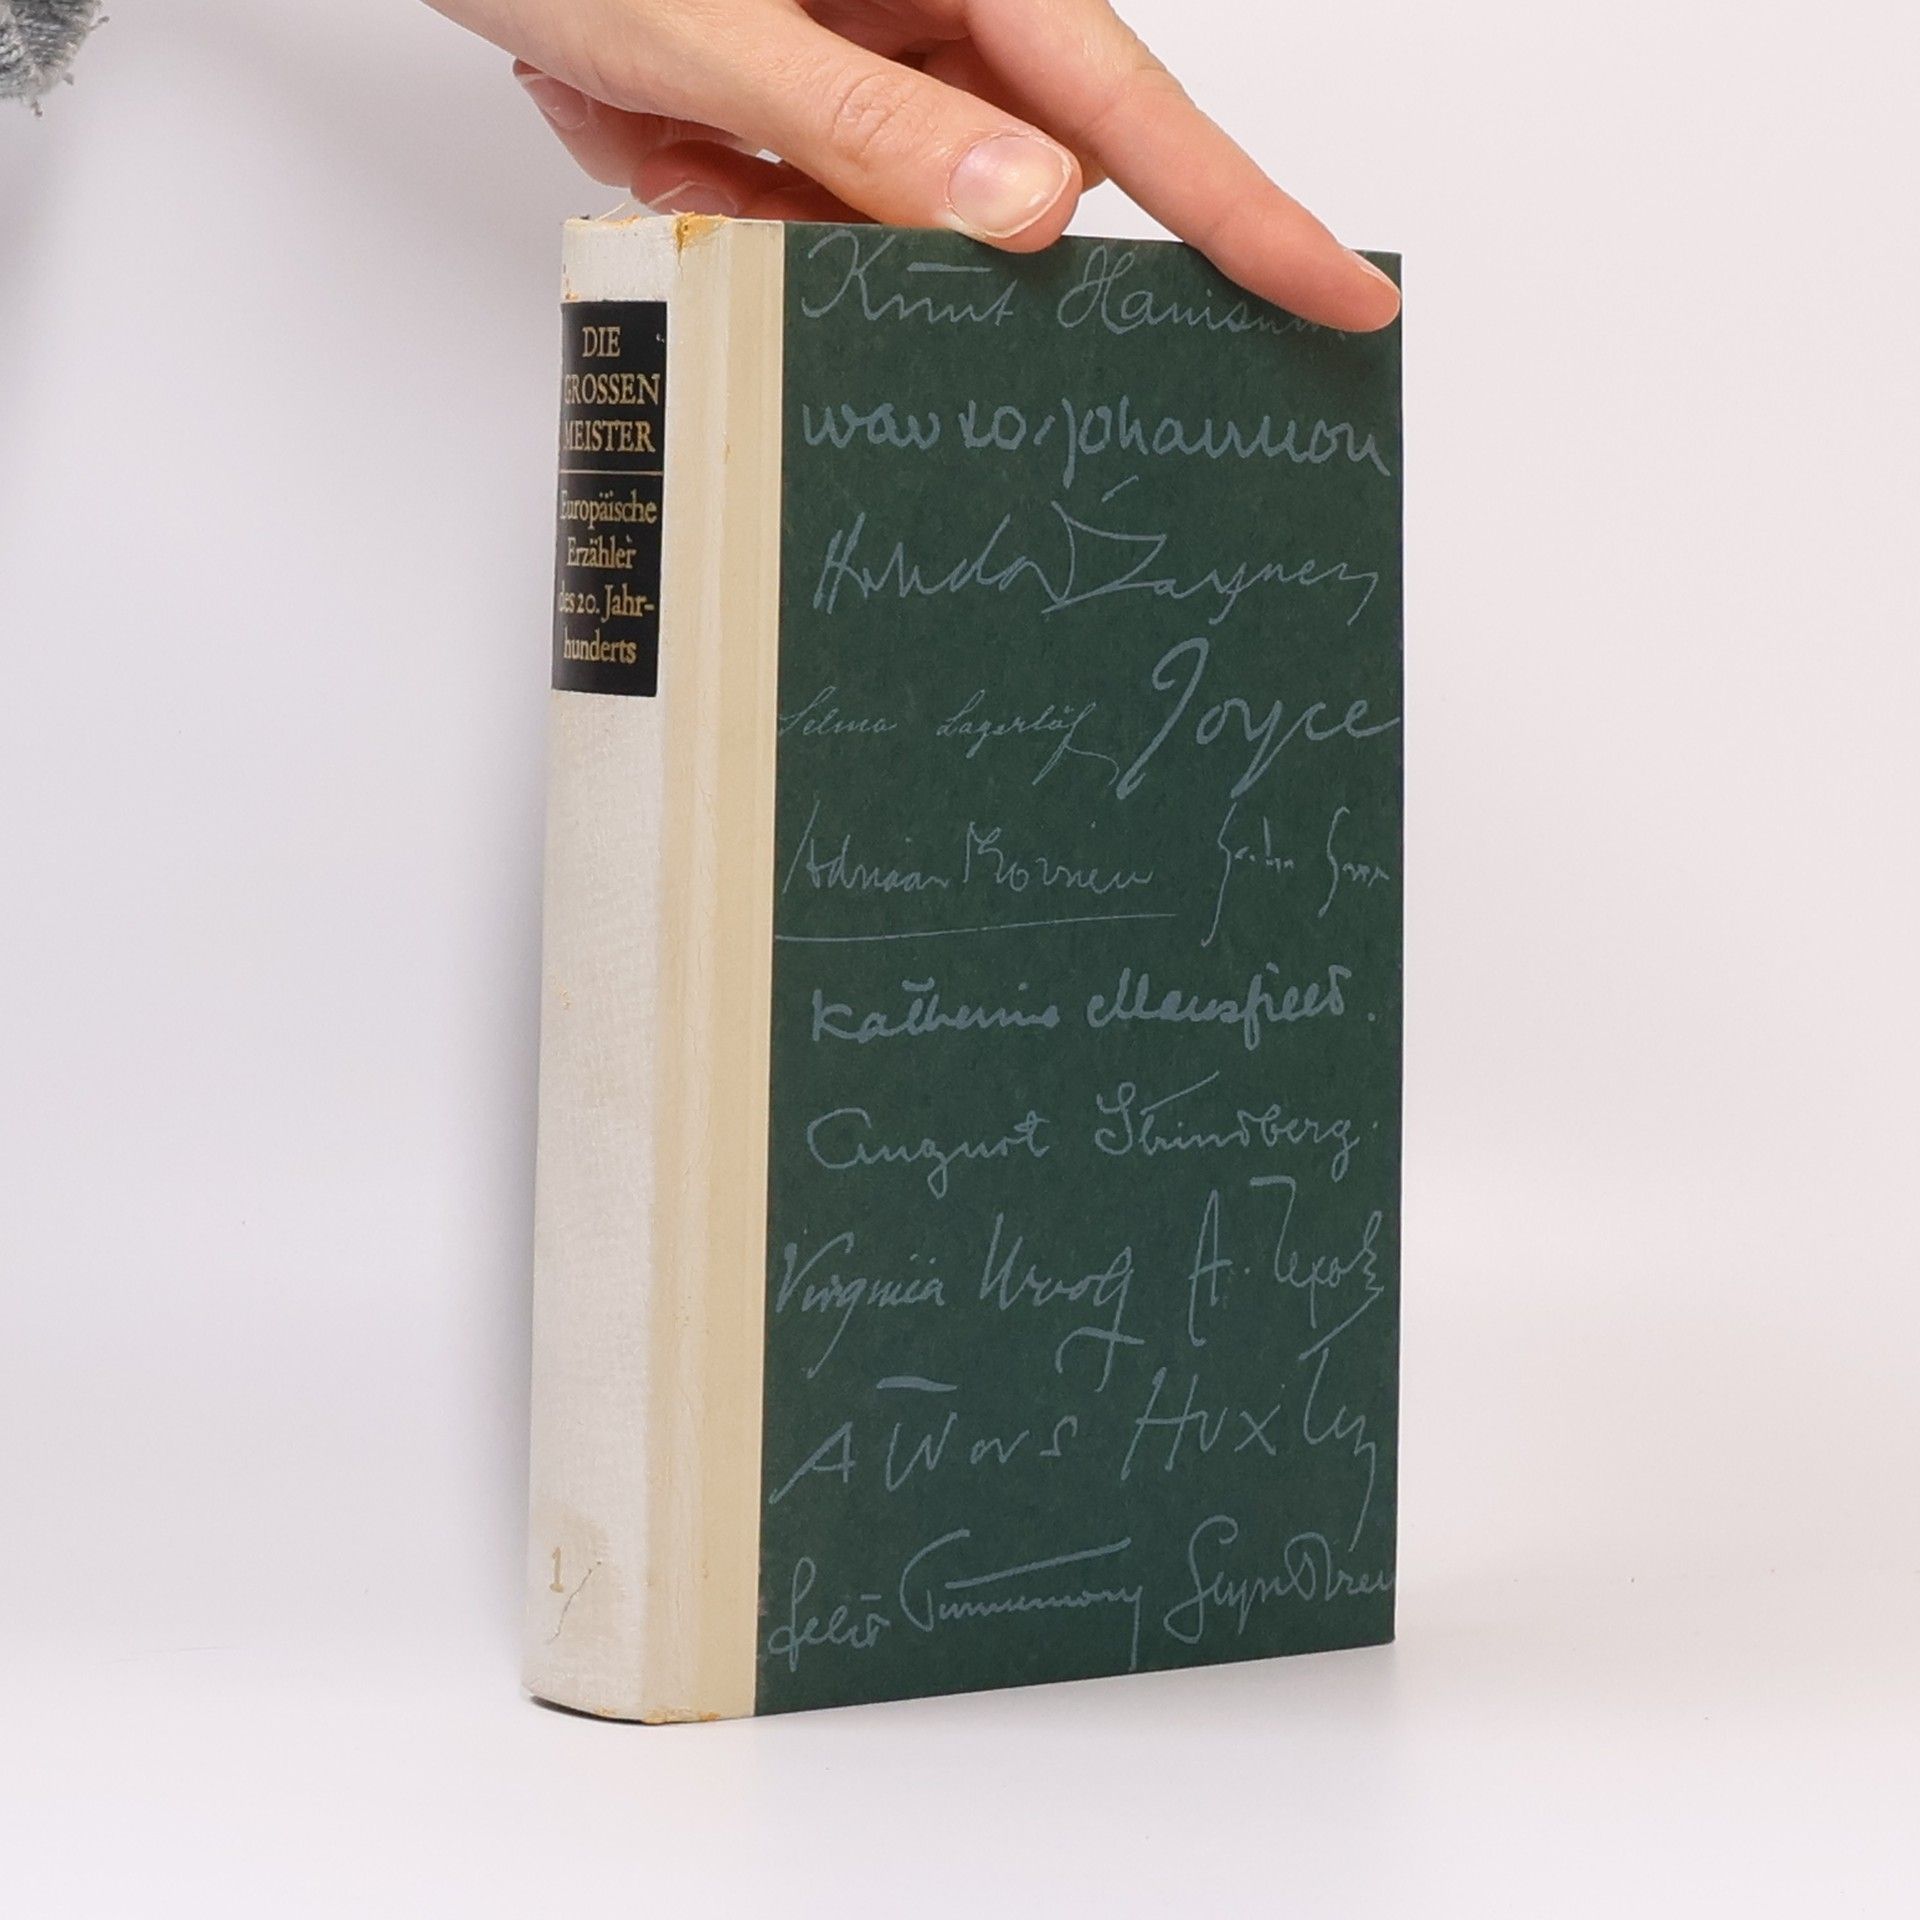 DIE
GROSSEN
MEISTER
Europäische
Erzähler
des 20. Jahr-
hunderts
1
Knut Hamsun
Halldór Laxness
Selma Lagerlöf Joyce
Adriaan
Katherine Mansfield.
August Strindberg.
Virginia Woolf А. Чехов
Huxley
Felix Timmermans